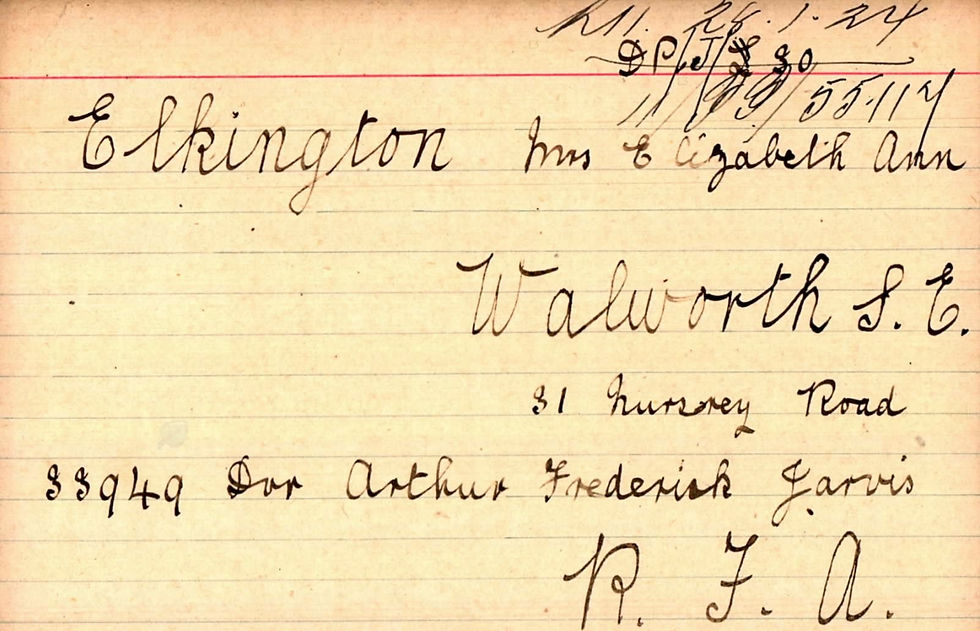 25.1.24
DP/J/
11/ /55114
Elkington Mrs Elizabeth Ann
Walworth S.E.
31 Nursrey Road
33949 Dvr Arthur Frederick Jarvis
R. F. A.